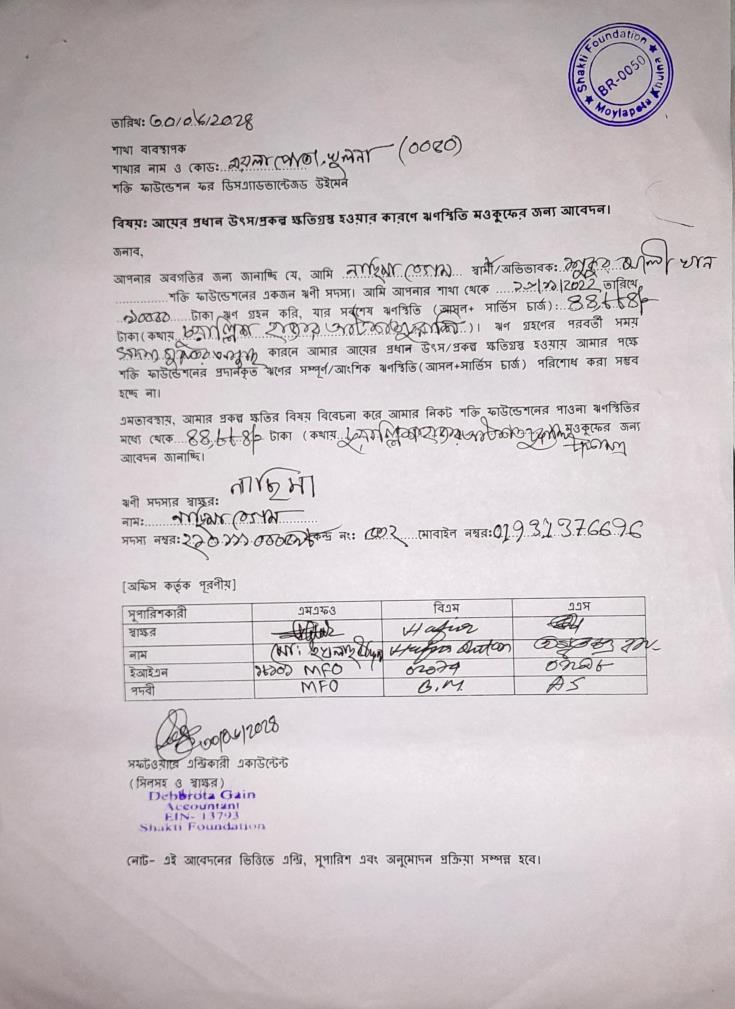 Shakti Foundation
BR-0050
Moylapota Khulna
তারিখ: ৩০/০৬/২০২৪
শাখা ব্যবস্থাপক
শাখার নাম ও কোড: ময়লা পোতা, খুলনা (০০৫০)
শক্তি ফাউন্ডেশন ফর ডিসএ্যাডভান্টেজড উইমেন
বিষয়: আয়ের প্রধান উৎস/প্রকল্প ক্ষতিগ্রস্ত হওয়ার কারণে ঋণস্থিতি মওকুফের জন্য আবেদন।
জনাব,
আপনার অবগতির জন্য জানাচ্ছি যে, আমি নাছিমা বেগম স্বামী/অভিভাবক: শুকুর আলী খান
শক্তি ফাউন্ডেশনের একজন ঋণী সদস্য। আমি আপনার শাখা থেকে তারিখে
টাকা ঋণ গ্রহন করি, যার সর্বশেষ ঋণস্থিতি (আসল+ সার্ভিস চার্জ): ৪৪,৮৮৪/-
টাকা(কথায় হাজার আটশত চুরাশি)। ঋণ গ্রহণের পরবর্তী সময়
কারনে আমার আয়ের প্রধান উৎস/প্রকল্প ক্ষতিগ্রস্ত হওয়ায় আমার পক্ষে
শক্তি ফাউন্ডেশনের প্রদানকৃত ঋণের সম্পূর্ণ/আংশিক ঋণস্থিতি(আসল+সার্ভিস চার্জ) পরিশোধ করা সম্ভব
হচ্ছে না।
এমতাবস্থায়, আমার প্রকল্প ক্ষতির বিষয় বিবেচনা করে আমার নিকট শক্তি ফাউন্ডেশনের পাওনা ঋণস্থিতির
মধ্যে থেকে ৪৪,৮৮৪/- টাকা (কথায় হাজার আটশত মওকুফের জন্য
আবেদন জানাচ্ছি।
ঋণী সদস্যর স্বাক্ষর: নাছিমা
নাম: নাছিমা বেগম
সদস্য নম্বর: কেন্দ্র নং: মোবাইল নম্বর: 01931376696
[অফিস কর্তৃক পূরণীয়]
সুপারিশকারী এমএফও বিএম এএস
স্বাক্ষর Hafior
নাম মো:
ইআইএন MFO
পদবী MFO B.M. AS
৩০/০৬/২০২৪
সফটওয়্যারে এন্ট্রিকারী একাউন্টেন্ট
(সিলসহ ও স্বাক্ষর)
Debbrota Gain
Accountant
EIN- 13793
Shakti Foundation
নোট- এই আবেদনের ভিত্তিতে এন্ট্রি, সুপারিশ এবং অনুমোদন প্রক্রিয়া সম্পন্ন হবে।